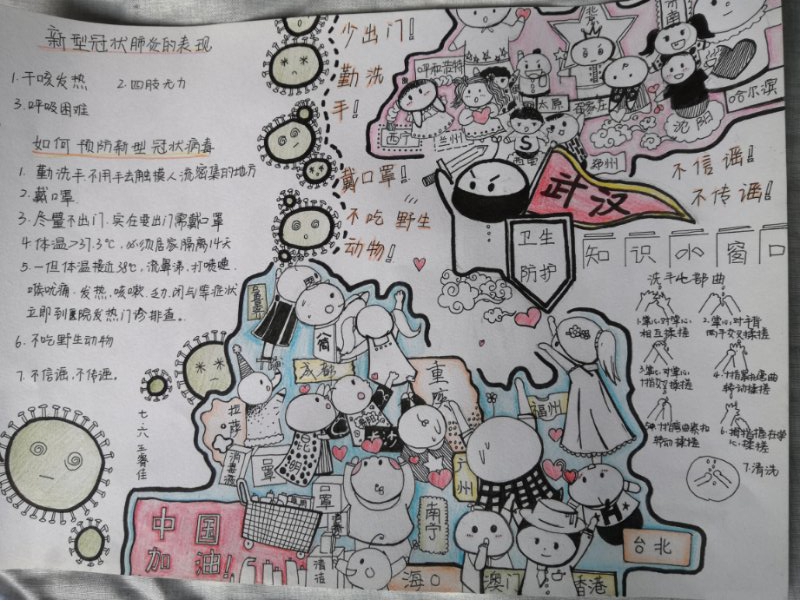 新型冠状肺炎的表现
1.干咳发热 2.四肢无力
3.呼吸困难
如何预防新型冠状病毒
1.勤洗手不用手去触摸人流密集的地方
2.戴口罩
3.尽量不出门,实在要出门需戴口罩
4.体温>37.3℃,必须居家隔离14天
5.一但体温接近38℃,流鼻涕、打喷嚏、
喉咙痛、发热、咳嗽、乏力、闭气等症状
立即到医院发热门诊排查。
6.不吃野生动物
7.不信谣,不传谣。
七·六 王睿佳
少出门!
勤洗
手!
戴口罩!
不吃野生
动物!
呼和浩特
北京
济南
西宁
兰州
太原
石家庄
沈阳
哈尔滨
郑州
武汉
卫生
防护
不信谣!
不传谣!
知识小窗口
洗手七部曲
1.掌心对掌心
相互揉搓
2.掌心对手背
两手交叉揉搓
3.掌心对掌心
十指交叉揉搓
转动揉搓
转动揉搓
心揉搓
7.清洗
成都
重庆
拉萨
昆明
贵阳
消毒液
口罩
口罩
福州
广州
南宁
台北
海口
澳门
香港
中国
加油!